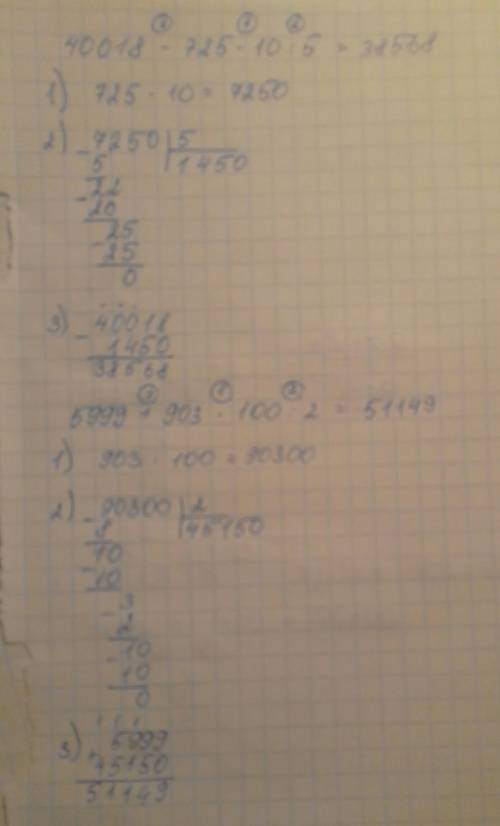 40018 - 725 · 10 : 5 = 38568
1) 725 · 10 = 7250
2) 7250 | 5
- 5 | 1450
22
- 20
25
- 25
0
3) 40018
- 1450
38568
5999 + 903 · 100 : 2 = 51149
1) 903 · 100 = 90300
2) - 90300 | 2
8 | 45150
10
- 10
3
- 2
10
- 10
0
3) 5999
+ 45150
51149